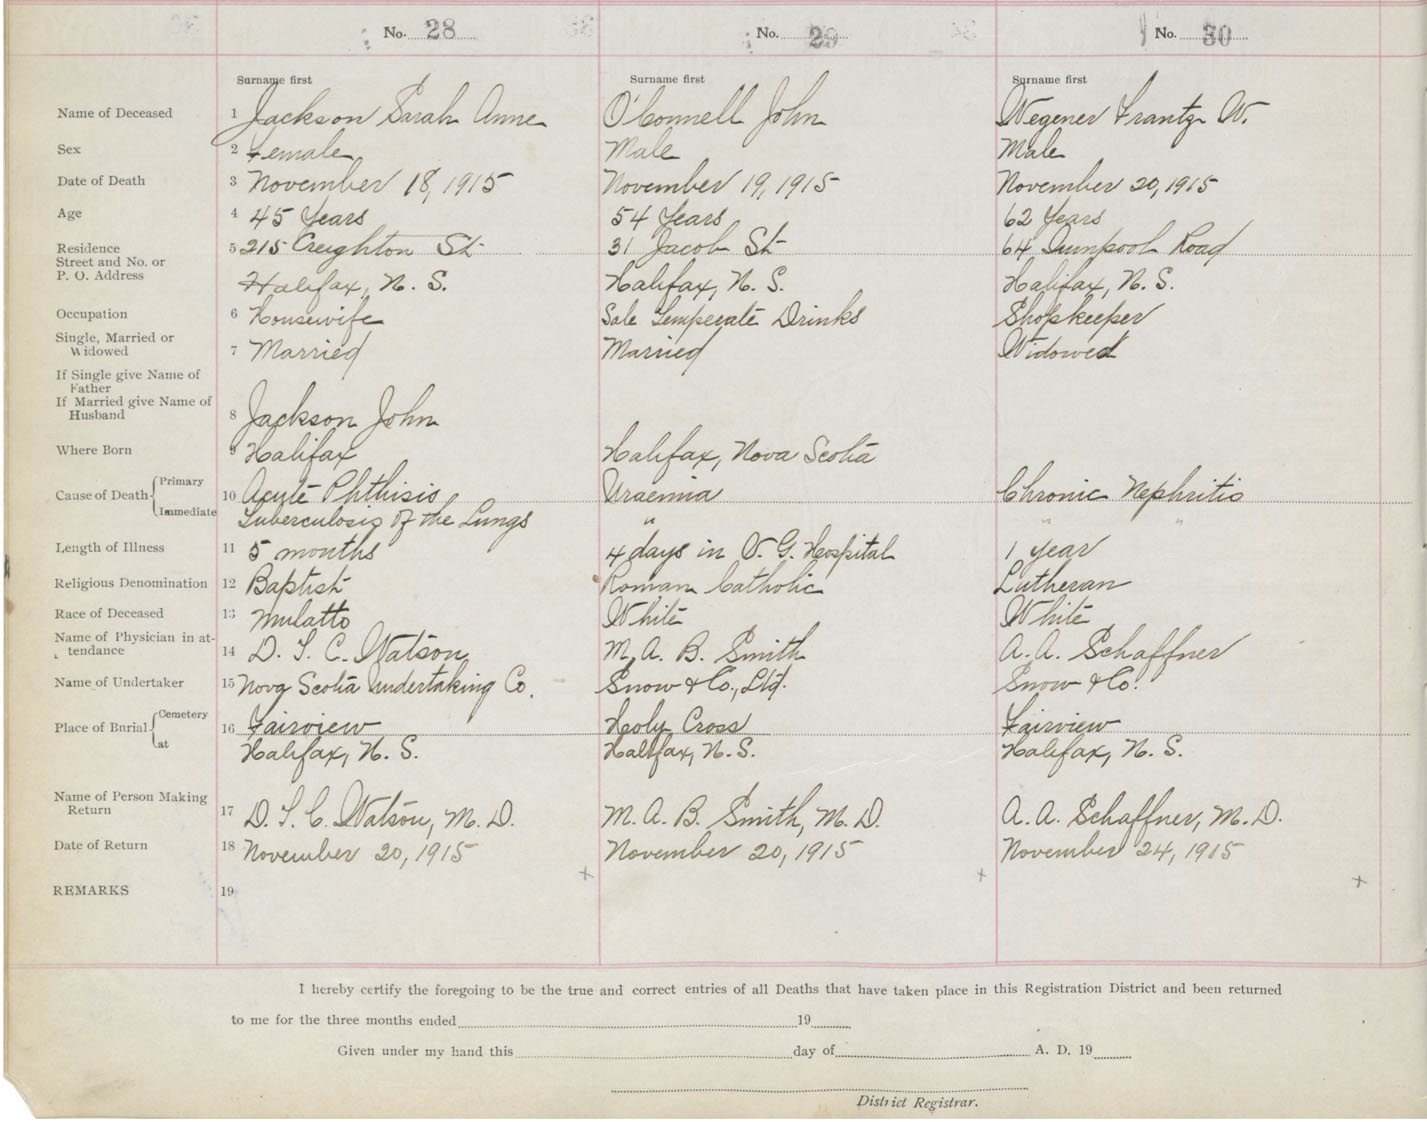 No. 28 No. 29 No. 30
Surname first Surname first Surname first
Name of Deceased 1 Jackson Sarah Anne O'Connell John Wegener Frantz W.
Sex 2 Female Male Male
Date of Death 3 November 18, 1915 November 19, 1915 November 20, 1915
Age 4 45 Years 54 Years 62 Years
Residence 5 215 Creighton St. 31 Jacob St. 64 Road
Street and No. or
P. O. Address Halifax, N. S. Halifax, N. S. Halifax, N. S.
Occupation 6 Housewife Sale Temperate Drinks Shopkeeper
Single, Married or
Widowed 7 Married Married Widowed
If Single give Name of
Father
If Married give Name of
Husband 8 Jackson John
Where Born 9 Halifax Halifax, Nova Scotia
Cause of Death Primary 10 Acute Phthisis Uraemia Chronic Nephritis
Immediate Tuberculosis of the Lungs " " "
Length of Illness 11 5 months 4 days in V. G. Hospital 1 year
Religious Denomination 12 Baptist Roman Catholic Lutheran
Race of Deceased 13 Mulatto White White
Name of Physician in at-
tendance 14 D. T. C. Watson M. A. B. Smith A. A. Schaffner
Name of Undertaker 15 Nova Scotia Undertaking Co. Snow & Co., Ltd. Snow & Co.
Place of Burial Cemetery 16 Fairview Holy Cross Fairview
at Halifax, N. S. Halifax, N. S. Halifax, N. S.
Name of Person Making
Return 17 D. T. C. Watson, M. D. M. A. B. Smith, M. D. A. A. Schaffner, M. D.
Date of Return 18 November 20, 1915 November 20, 1915 November 24, 1915
REMARKS 19
I hereby certify the foregoing to be the true and correct entries of all Deaths that have taken place in this Registration District and been returned
to me for the three months ended 19
Given under my hand this day of A. D. 19
District Registrar.